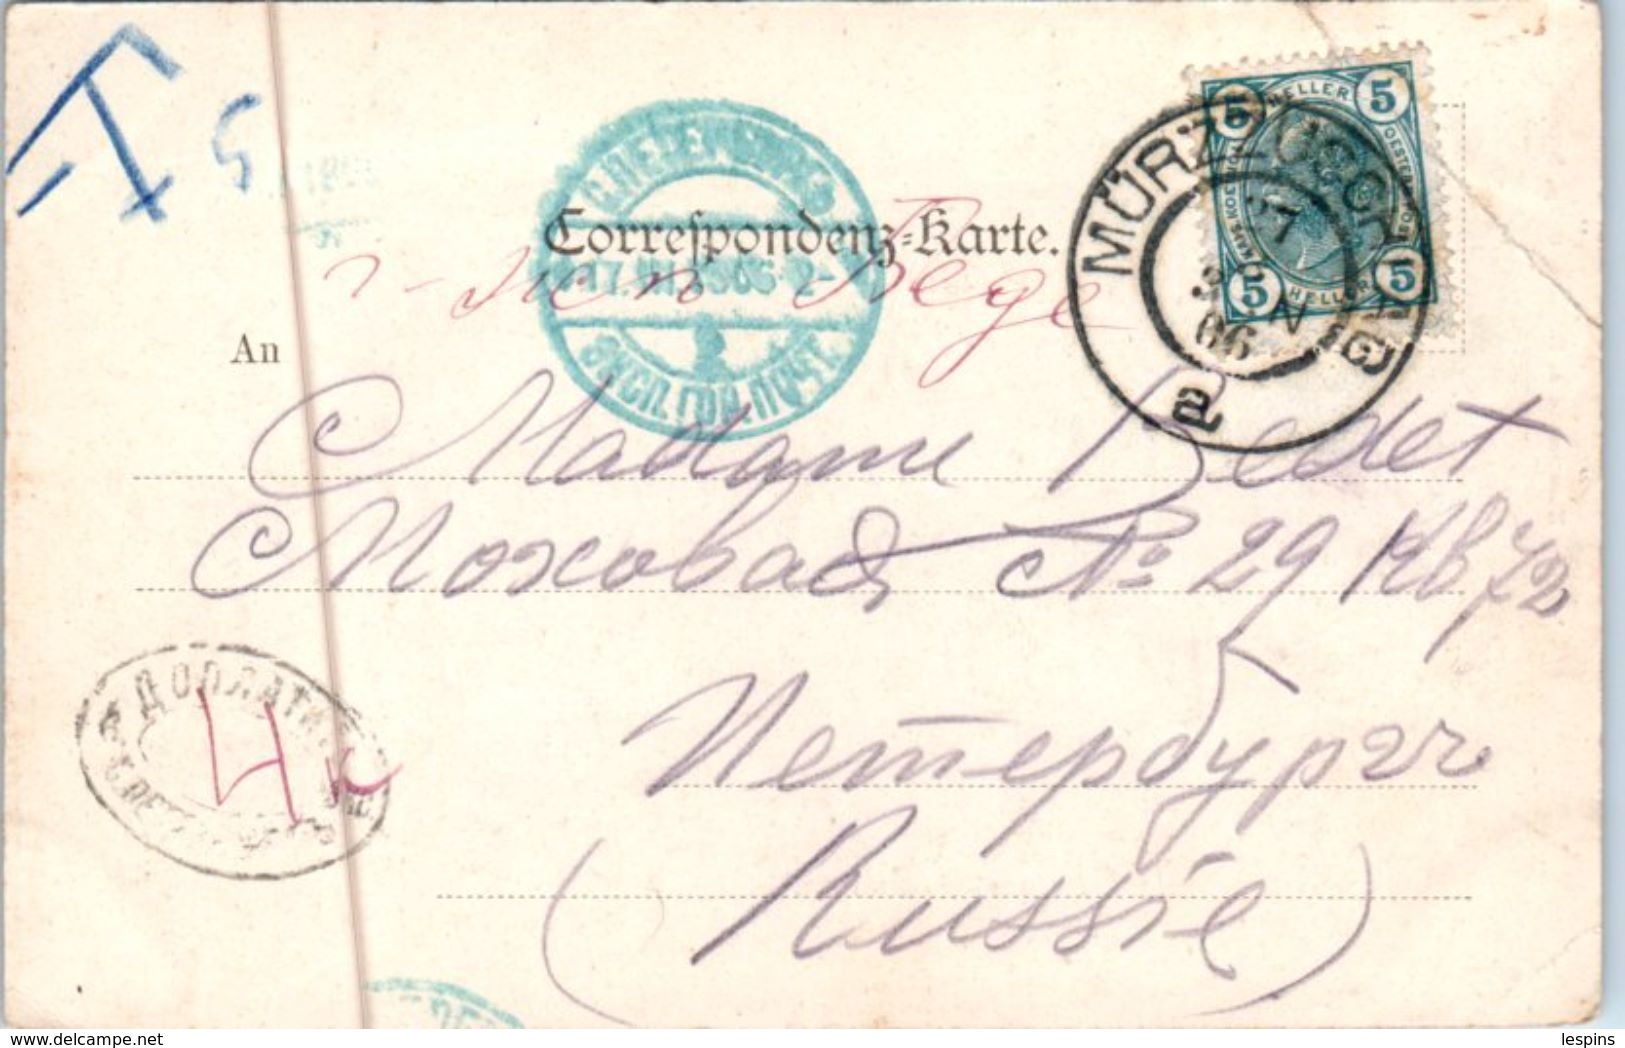 T 5
С.ПЕТЕРБУРГЪ
17.VII.1906 2-
ЭКСП.ГОР.ПОЧТ.
5 HELLER 5
5 HELLER 5
MÜRZZUSCHLAG
27
06
a
Correspondenz-Karte.
An
Madame Bedet
Моховая № 29 кв 72
ДОПЛАТИТЬ
4 к
Петербургъ
(Russie)
delcampe.net
lespins